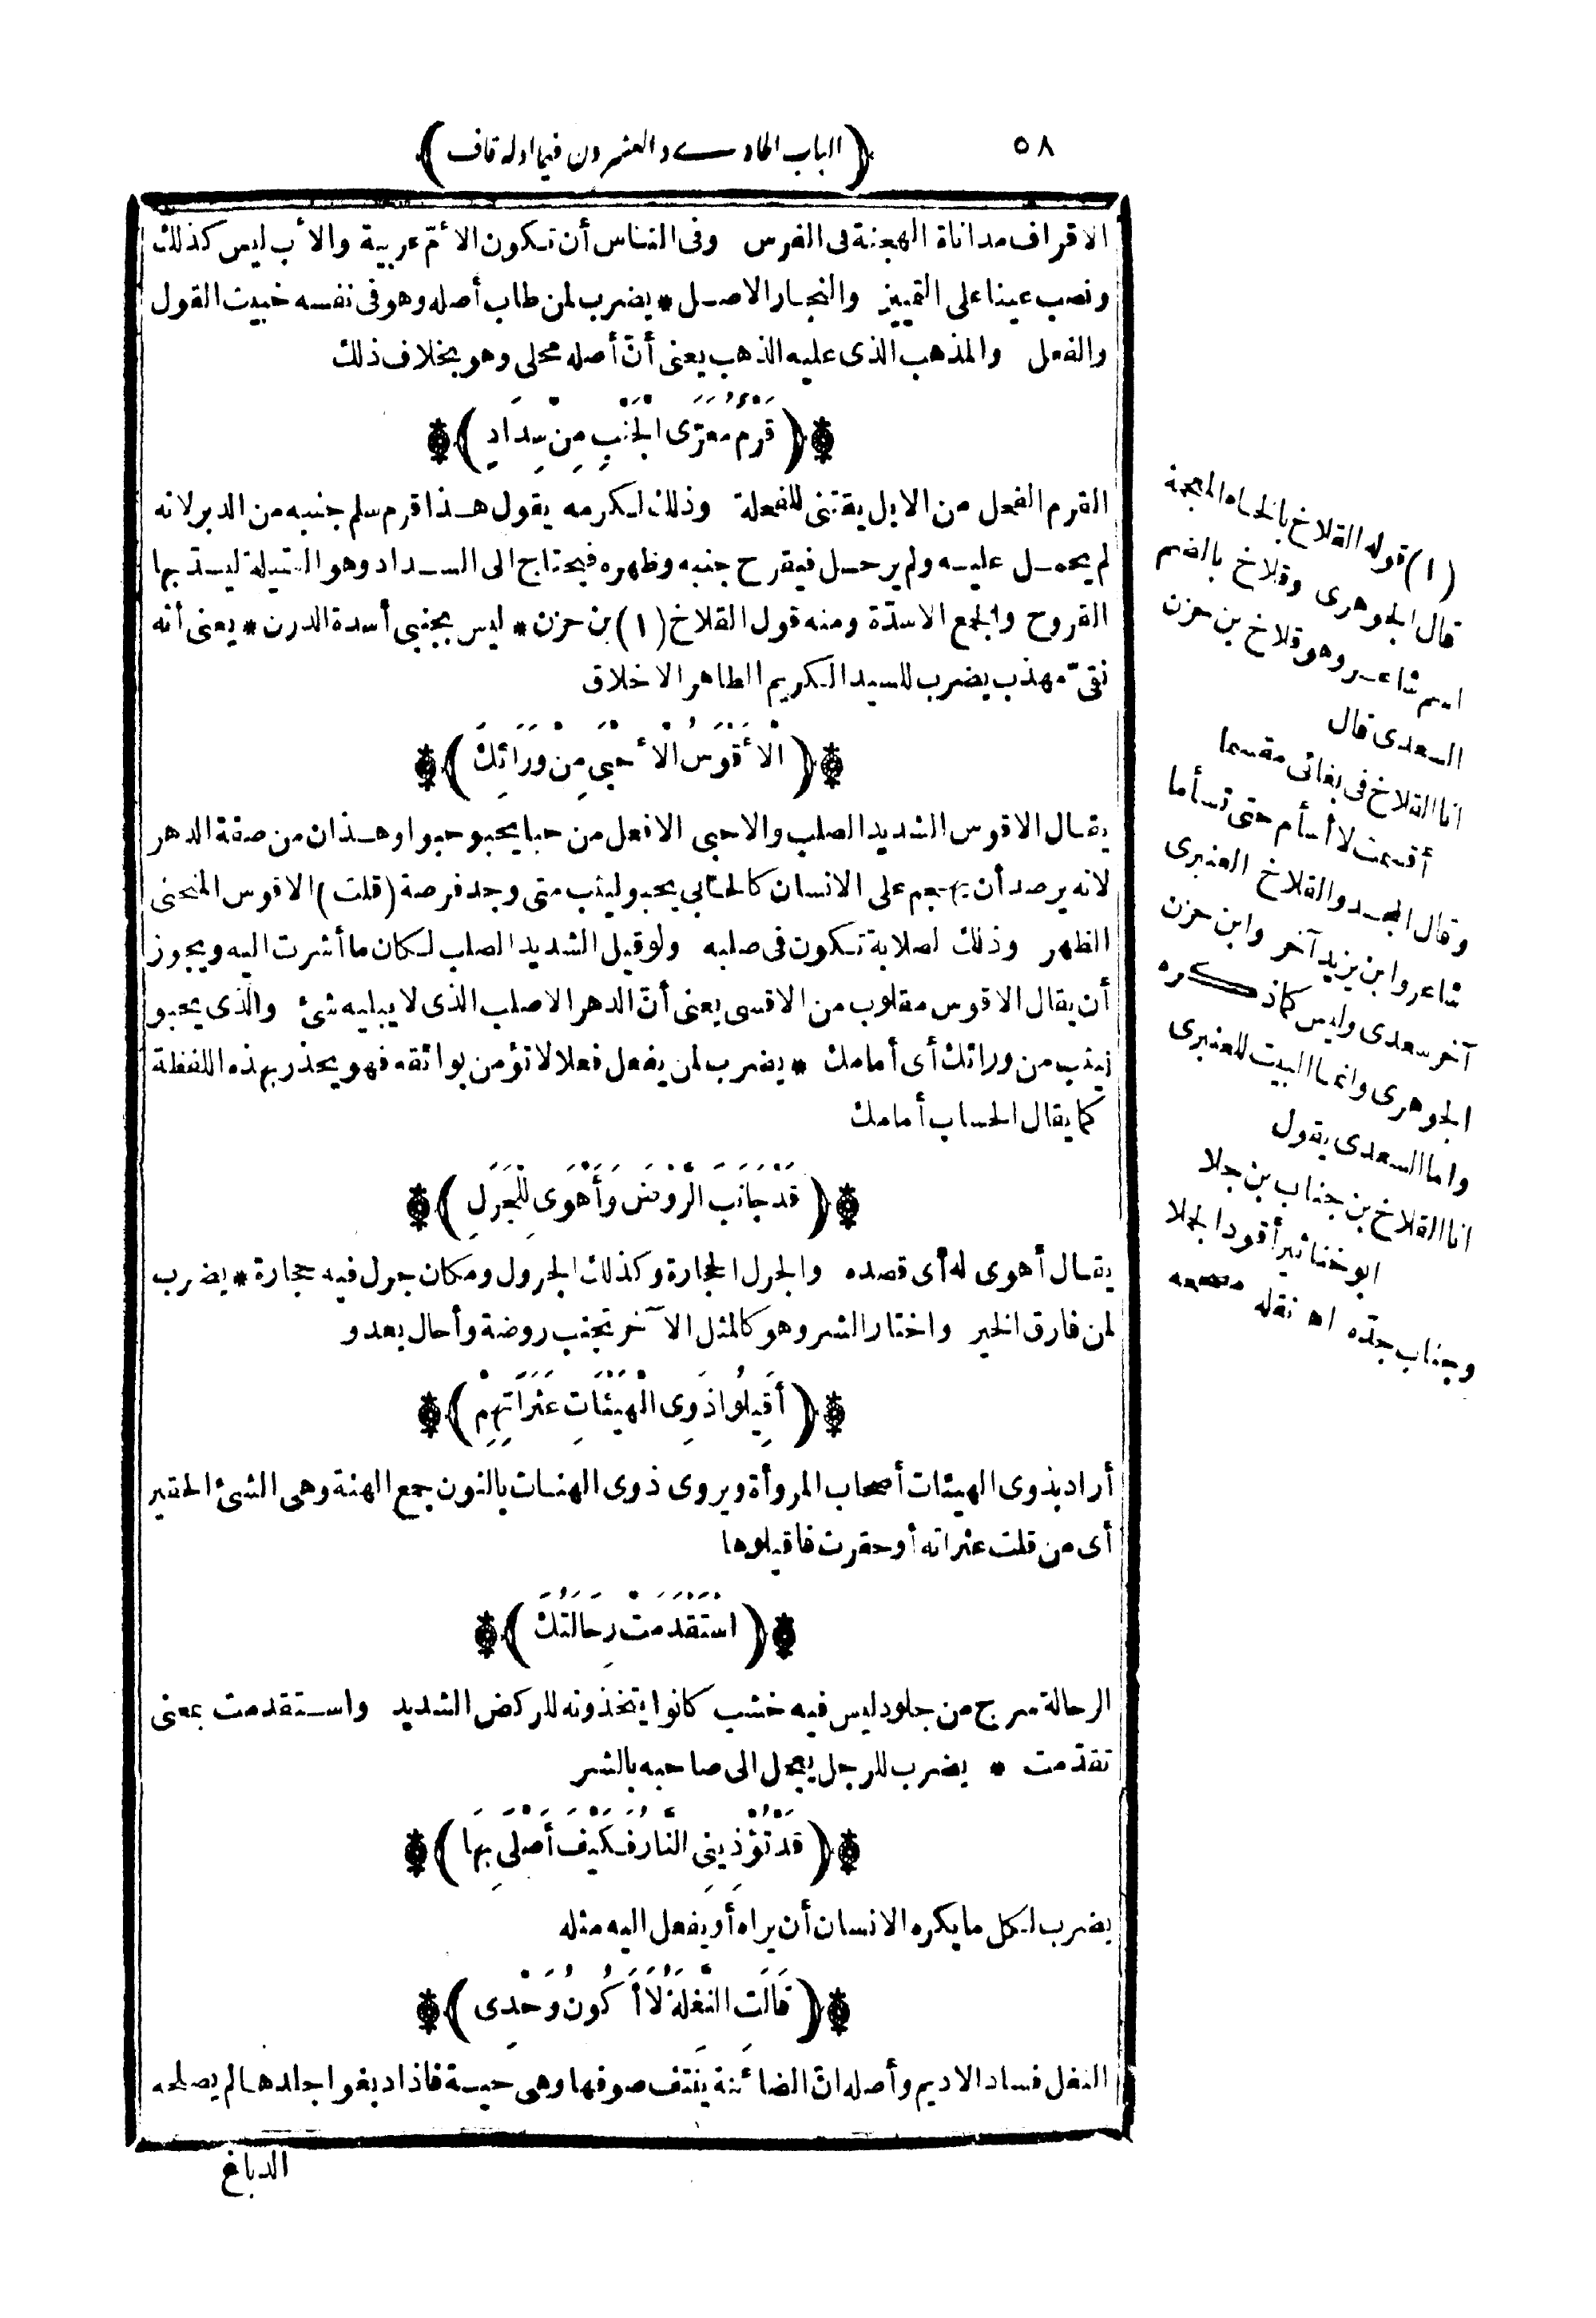 ٥٨
﴿الباب الحادي والعشرون فيما اوله قاف﴾
الاقراف مداناة الهجنة فى الفرس وفى الناس أن تكون الأمّ عربية والأب ليس كذلك
ونصب عينا على التمييز والنجار الاصل * يضرب لمن طاب أصله وهو فى نفسه خبيث القول
والفعل والمذهب الذى عليه الذهب يعنى أنّ أصله محلى وهو بخلاف ذلك
﴿قَرْمٌ مُعَرَّى الْجَنْبِ مِنْ سِدَادِ﴾
القرم الفحل من الابل يقتنى للفحلة وذلك لكرمه يقول هذا قرم سلم جنبه من الدبر لانه
لم يحمل عليه ولم يرحل فيقرح جنبه وظهره فيحتاج الى السداد وهو الفتيلة ليسدّ بها
القروح والجمع الاسدّة ومنه قول القلاخ (١) بن حزن * ليس بجنبى أسدة الدرن * يعنى أنه
نقىّ مهذب يضرب للسيد الكريم الطاهر الاخلاق
﴿الْأَقْوَسُ الْأَحْبَى مِنْ وَرَائِكَ﴾
يقال الاقوس الشديد الصلب والاحبى الافعل من حبا يحبو حبوا وهذان من صفة الدهر
لانه يرصد أن يهجم على الانسان كالحابى يحبو ليثب متى وجد فرصة (قلت) الاقوس المنحنى
الظهر وذلك لصلابة تكون فى صلبه ولو قيل الشديد الصلب لكان ما أشرت اليه ويجوز
أن يقال الاقوس مقلوب من الاقسى يعنى أنّ الدهر الاصلب الذى لا يبليه شئ والذى يحبو
ليثب من ورائك أى أمامك * يضرب لمن يفعل فعلا لا تؤمن بوائقه فهو يحذر بهذه اللفظة
كما يقال الحساب أمامك
﴿قَدْ جَانَبَ الرَّوْضَ وَأَهْوَى لِلْجَرَلِ﴾
يقال أهوى له أى قصده والجرل الحجارة وكذلك الجرول ومكان جرل فيه حجارة * يضرب
لمن فارق الخير واختار الشر وهو كالمثل الآخر تجنب روضة وأحال يعدو
﴿أَقِيلُوا ذَوِى الْهَيْئَاتِ عَثَرَاتِهِمْ﴾
أراد بذوى الهيئات أصحاب المروأة ويروى ذوى الهنات بالنون جمع الهنة وهى الشئ الحقير
أى من قلت عثراته أو حقرت فاقيلوها
﴿اسْتَقْدَمَتْ رِحَالَتُكَ﴾
الرحالة سرج من جلود ليس فيه خشب كانوا يتخذونه للركض الشديد واستقدمت بمعنى
تقدّمت * يضرب للرجل يعجل الى صاحبه بالشر
﴿قَدْ تُؤْذِينِى النَّارُ فَكَيْفَ أَصْلَى بِهَا﴾
يضرب لكل ما يكره الانسان أن يراه أو يفعل اليه مثله
﴿قَالَتِ النَّغْلَةُ لَا أَكُونُ وَحْدِى﴾
النغل فساد الاديم وأصله انّ الضائنة ينتف صوفها وهى حيسة فاذا دبغوا جلدها لم يصلحه
الدباغ
(١) قوله القلاخ بالخاء المعجمة
قال الجوهرى وقلاخ بالضم
اسم شاعر وهو قلاخ بن حزن
السعدى قال
انا القلاخ فى بغائى مقسما
أقسمت لا أسأم حتى تسأما
وقال المجد والقلاخ العنبرى
شاعر وابن يزيد آخر وابن حزن
آخر سعدى وليس كما ذكره
الجوهرى وانما البيت للعنبرى
واما السعدى يقول
انا القلاخ بن جناب بن جلا
ابو خناثير أقود الجملا
وجناب جدّه اه نقله مصححه